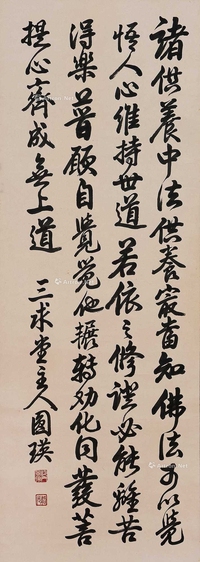 諸供養中法供養寂首知佛法可以覺
悟人心維持世道若依之修證必能離苦
得樂普願自覺覺他輾轉勸化同發菩
提心齊成無上道
三求堂主人圓瑛